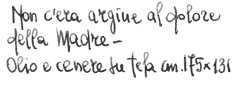 Non c'era argine al dolore
della Madre -
Olio e cenere su tela cm. 175x131